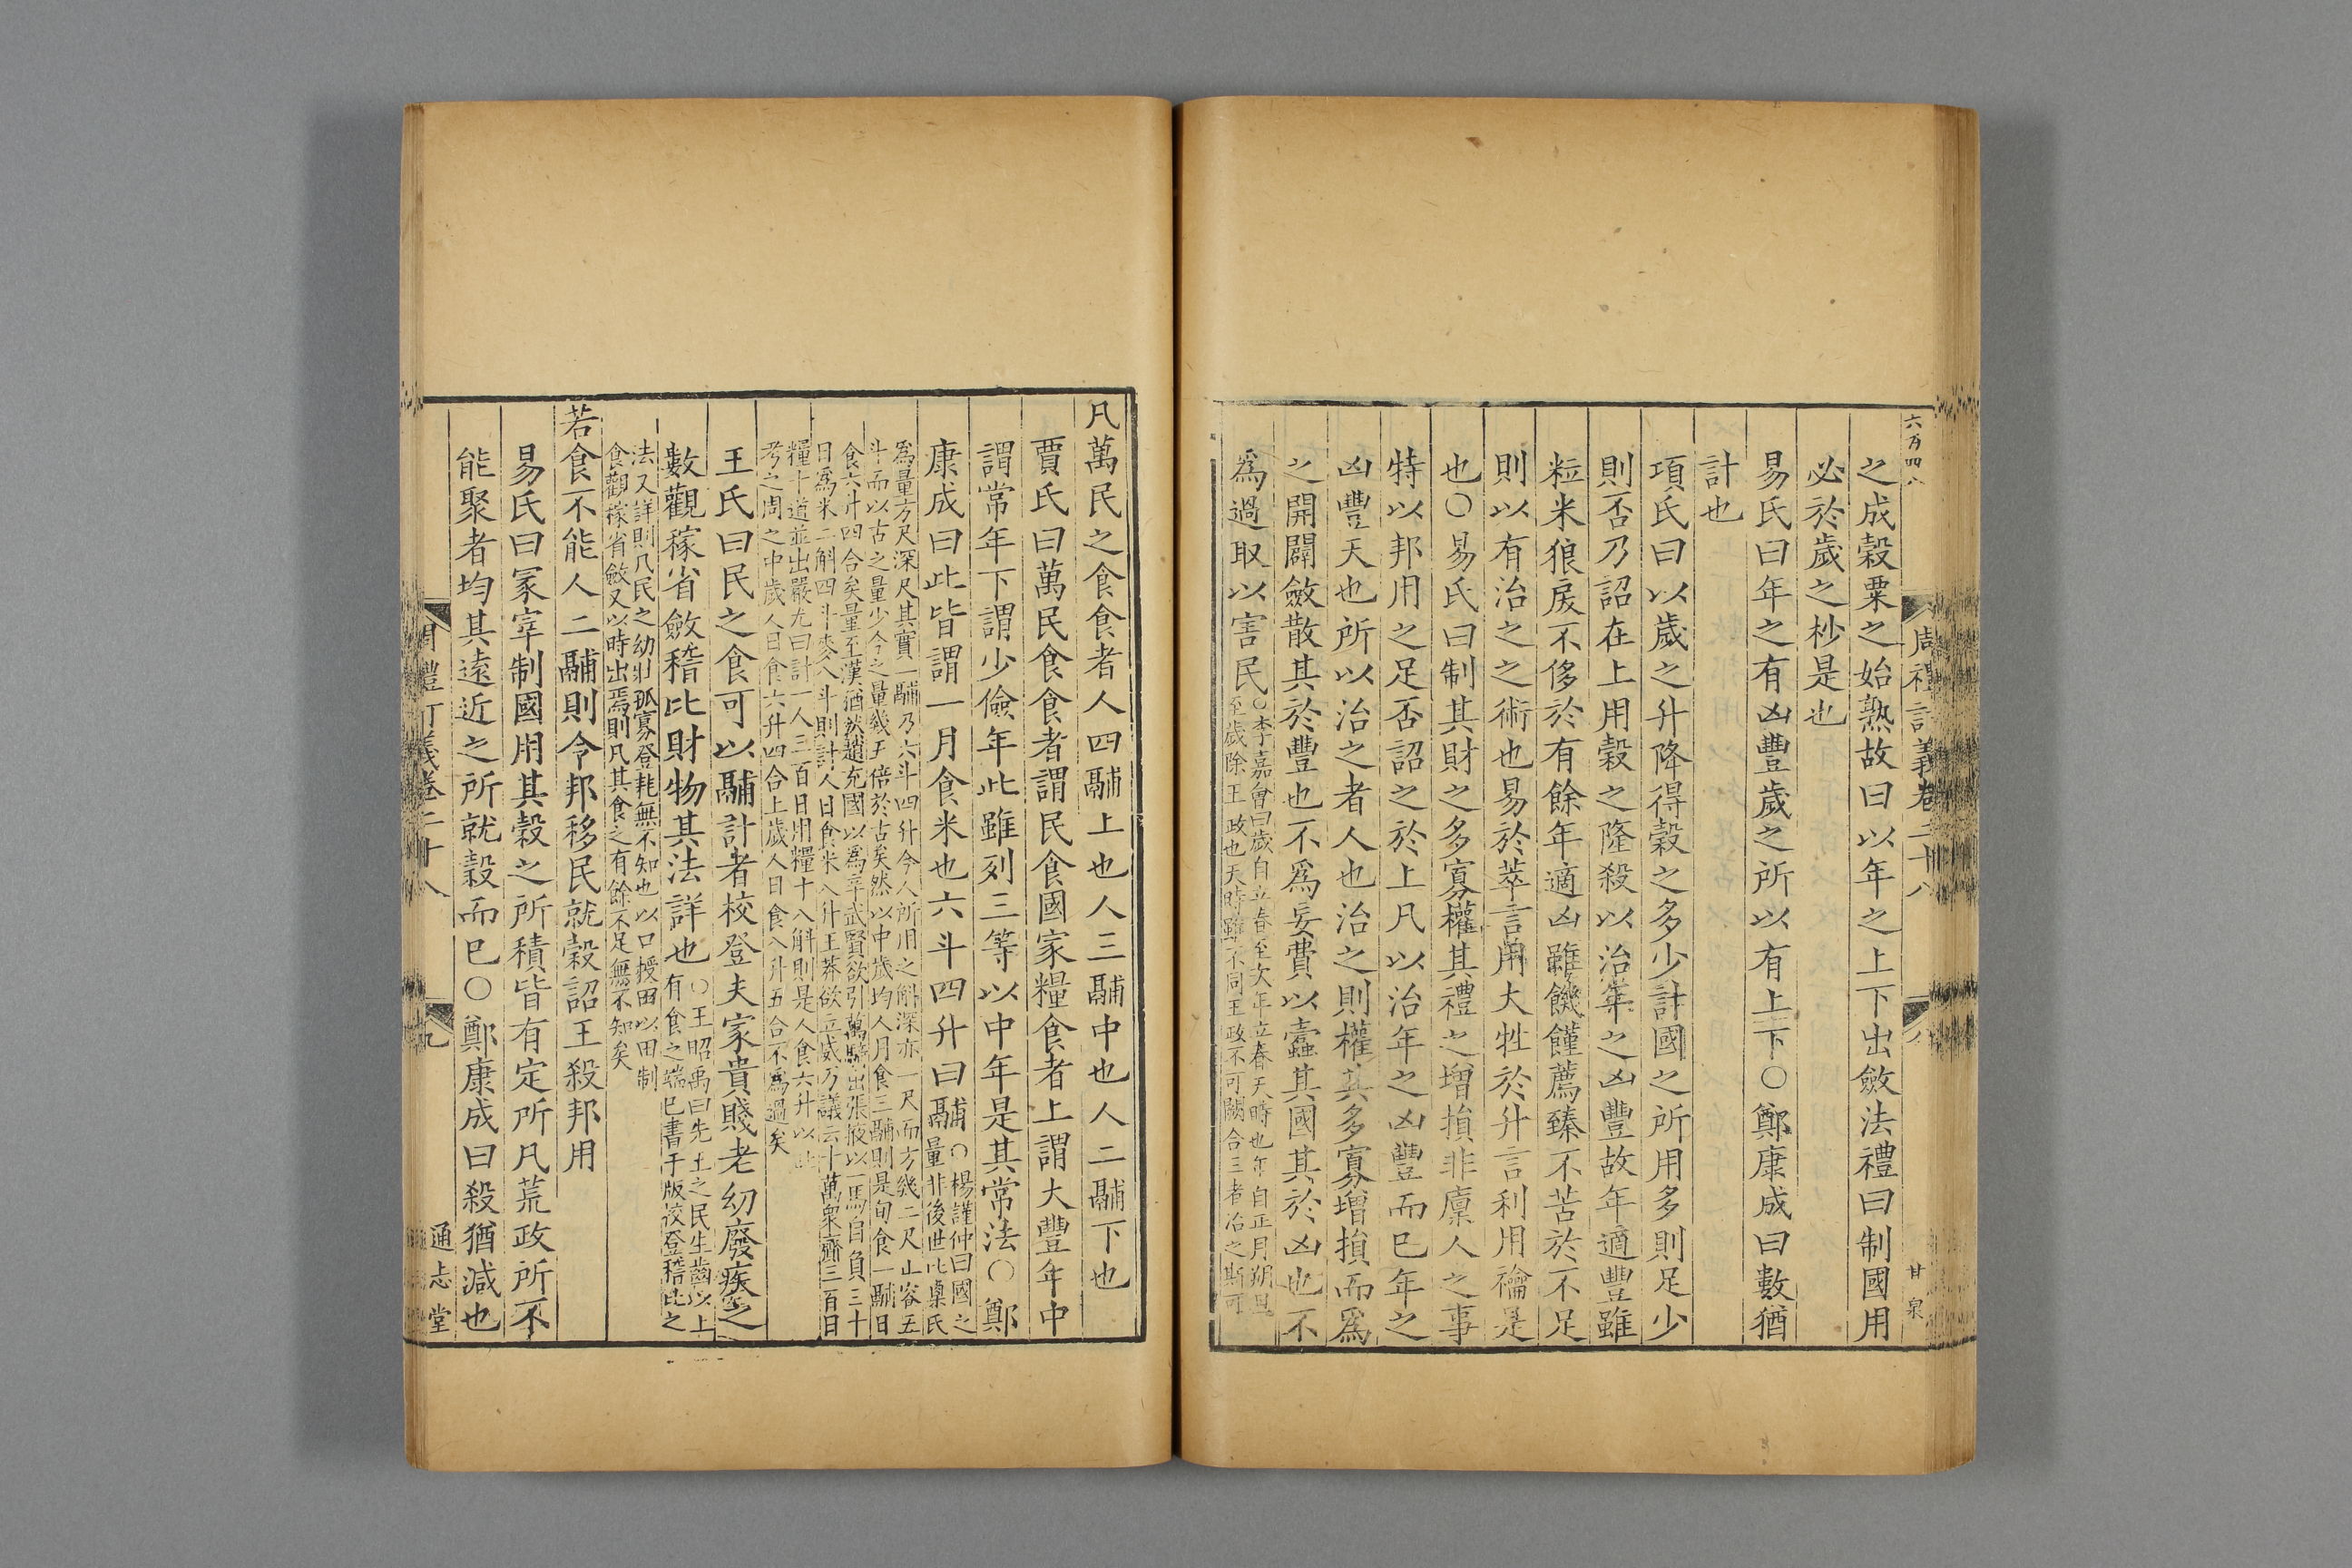 六万四八
周禮訂義卷二十八
八
甘泉
之成穀粟之始熟故曰以年之上下出斂法禮曰制國用
必於歲之杪是也
易氏曰年之有凶豐歲之所以有上下○鄭康成曰數猶
計也
項氏曰以歲之升降得穀之多少計國之所用多則足少
則否乃詔在上用穀之隆殺以治年之凶豐故年適豐雖
粒米狼戾不侈於有餘年適凶雖饑饉薦臻不苦於不足
則以有治之之術也易於萃言用大牲於升言利用禴是
也○易氏曰制其財之多寡權其禮之增損非廩人之事
特以邦用之足否詔之於上凡以治年之凶豐而已年之
凶豐天也所以治之者人也治之則權其多寡增損而爲
之開闢斂散其於豐也不爲妄費以蠹其國其於凶也不
爲過取以害民○李嘉會曰歲自立春至次年立春天時也年自正月朔旦
至歲除王政也天時雖不同王政不可闕合三者治之斯可
凡萬民之食食者人四鬴上也人三鬴中也人二鬴下也
賈氏曰萬民食食者謂民食國家糧食者上謂大豐年中
謂常年下謂少儉年此雖列三等以中年是其常法○鄭
康成曰此皆謂一月食米也六斗四升曰鬴○楊謹仲曰國之
量非後世比㮚氏
爲量方尺深尺其實一鬴乃六斗四升今人所用之斛深亦一尺而方幾二尺止容五
斗而以古之量少今之量幾于倍於古矣然以中歲均人月食三鬴則是旬食一鬴日
食六升四合矣量至漢酒然趙充國以爲辛武賢欲引萬騎出張掖以一馬自負三十
日爲米二斛四斗麥八斗則計人日食米八升王莽欲立威乃議云十萬衆齎三百日
糧十道並出嚴尤曰計一人三百日用糧十八斛則是人食六升以此
考之周之中歲人日食六升四合上歲人日食八升五合不爲過矣
王氏曰民之食可以鬴計者校登夫家貴賤老幼廢疾之
數觀稼省斂稽比財物其法詳也○王昭禹曰先王之民生齒以上
有食之端已書于版校登稽比之
法又詳則凡民之幼壯孤寡登耗無不知也以口授田以田制
食觀稼省斂又以時出焉則凡其食之有餘不足無不知矣
若食不能人二鬴則令邦移民就穀詔王殺邦用
易氏曰冢宰制國用其穀之所積皆有定所凡荒政所不
能聚者均其遠近之所就穀而已○鄭康成曰殺猶減也
周禮訂義卷二十八
九
通志堂